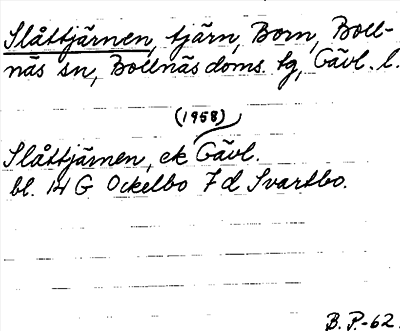 Slåttjärnen, tjärn, Born, Boll-
näs sn, Bollnäs doms. tg, Gävl. l.
(1958)
Slåttjärnen, ek Gävl.
bl. 14 G Ockelbo 7 d Svartbo.
B. P.-62.